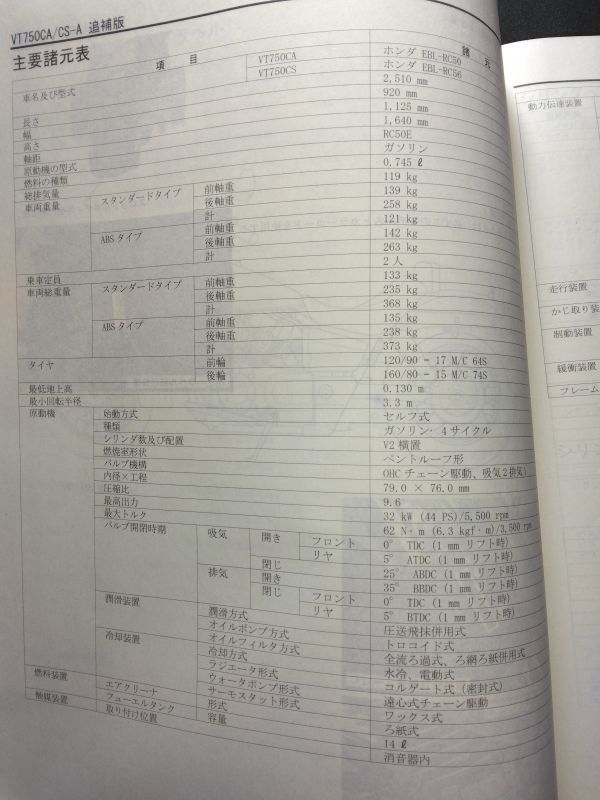 VT750CA/CS-A 追補版
主要諸元表
項 目 諸 元
車名及び型式 VT750CA ホンダ EBL-RC50
VT750CS ホンダ EBL-RC56
長さ 2,510 mm
幅 920 mm
高さ 1,125 mm
軸距 1,640 mm
原動機の型式 RC50E
燃料の種類 ガソリン
総排気量 0.745 ℓ
車両重量 スタンダードタイプ 前軸重 119 kg
後軸重 139 kg
計 258 kg
ABSタイプ 前軸重 121 kg
後軸重 142 kg
計 263 kg
乗車定員 2 人
車両総重量 スタンダードタイプ 前軸重 133 kg
後軸重 235 kg
計 368 kg
ABSタイプ 前軸重 135 kg
後軸重 238 kg
計 373 kg
タイヤ 前輪 120/90 - 17 M/C 64S
後輪 160/80 - 15 M/C 74S
最低地上高 0.130 m
最小回転半径 3.3 m
原動機 始動方式 セルフ式
種類 ガソリン・4サイクル
シリンダ数及び配置 V2 横置
燃焼室形状 ペントルーフ形
バルブ機構 OHC チェーン駆動、吸気2排気1
内径×工程 79.0 × 76.0 mm
圧縮比 9.6
最高出力 32 kW (44 PS)/5,500 rpm
最大トルク 62 N・m (6.3 kgf・m)/3,500 rpm
バルブ開閉時期 吸気 開き フロント 0° TDC (1 mm リフト時)
リヤ 5° ATDC (1 mm リフト時)
閉じ 25° ABDC (1 mm リフト時)
排気 開き 35° BBDC (1 mm リフト時)
閉じ フロント 0° TDC (1 mm リフト時)
リヤ 5° BTDC (1 mm リフト時)
潤滑装置 潤滑方式 圧送飛抹併用式
オイルポンプ方式 トロコイド式
オイルフィルタ方式 全流ろ過式、ろ網ろ紙併用式
冷却装置 冷却方式 水冷、電動式
ラジエータ形式 コルゲート式 (密封式)
ウォータポンプ形式 遠心式チェーン駆動
サーモスタット形式 ワックス式
燃料装置 エアクリーナ 形式 ろ紙式
フューエルタンク 容量 14 ℓ
触媒装置 取り付け位置 消音器内
動力伝達装置
走行装置
かじ取り装
制動装置
緩衝装置
フレーム